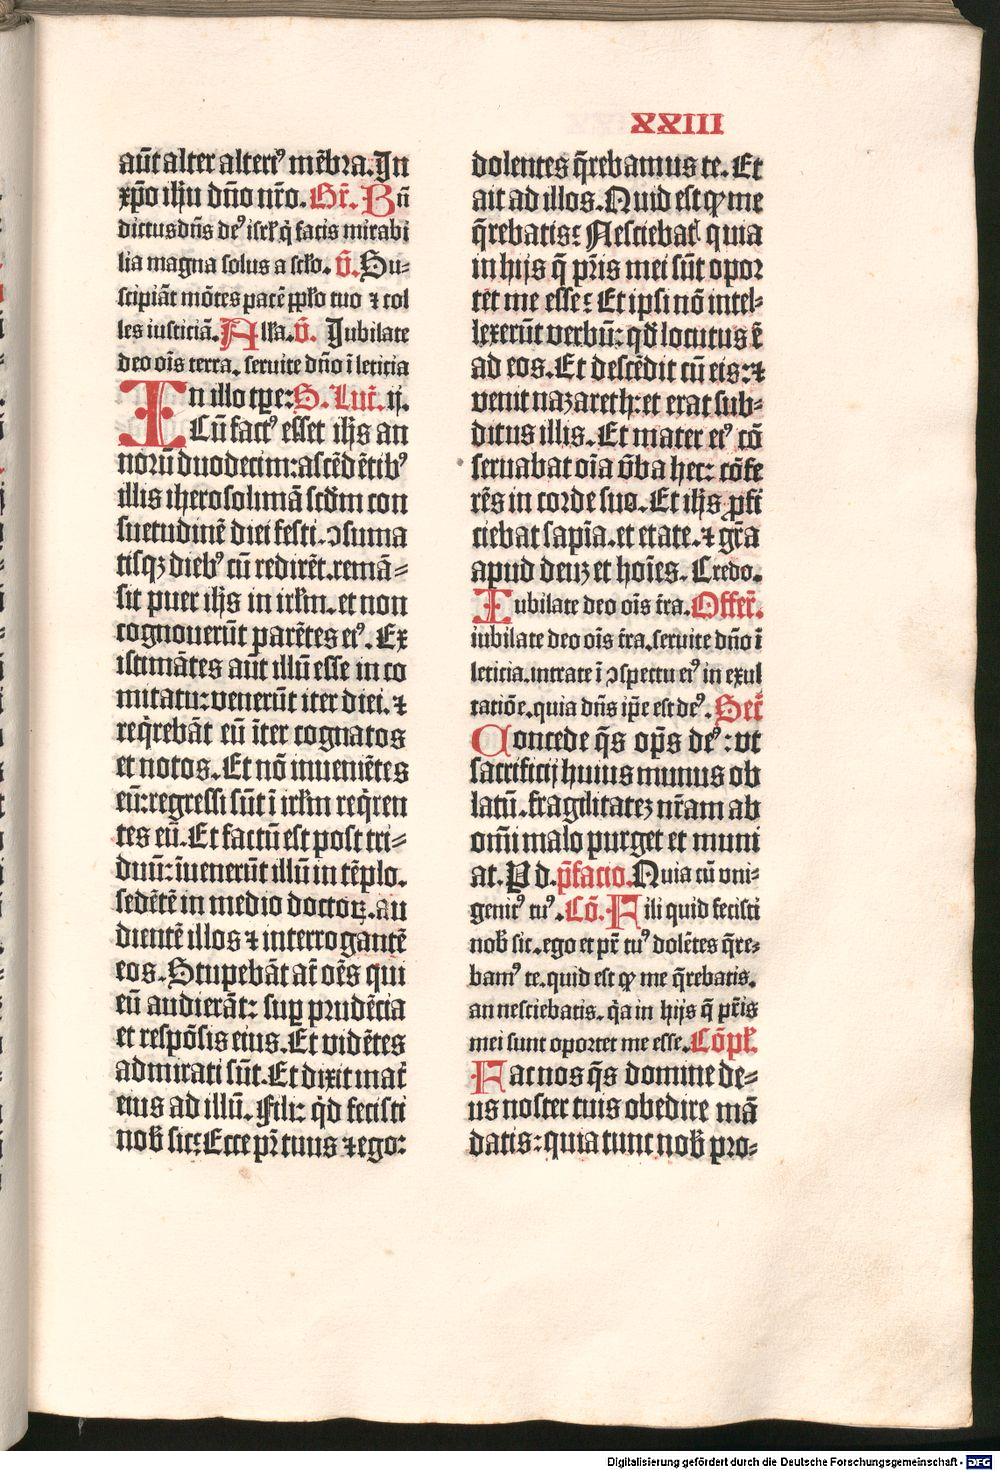 XXIII
aūt alter alteriꝰ mēbra. In
xp̄o ihū dn̄o nr̄o. Gr̄. Bn̄
dictus dn̄s deꝰ isrl̄ q̇ facis mirabi
lia magna solus a sclo. v̄. Su-
scipiāt mōtes pacē ppl̄o tuo ⁊ col
les iusticiā. Alla. v̄. Jubilate
deo oīs terra. seruite dn̄o ī leticia
In illo tꝑe: S. Luc̄. ij.
Cū factꝰ esset ihs̄ an
norū duodecim: ascēdētibꝰ
illis iherosolimā scd̄m con
suetudinē diei festi. ↄsuma
tisqꝫ diebꝰ cū redirēt. remā=
sit puer ihs̄ in irlm̄. et non
cognouerūt parētes eiꝰ. Ex
istimātes aūt illū esse in co
mitatu: venerūt iter diei. ⁊
req̇rebāt eū īter cognatos
et notos. Et nō inueniētes
eū: regressi sūt ī irlm̄ req̇ren
tes eū. Et factū est post tri=
duū: īuenerūt illū in tēplo.
sedētē in medio doctoꝝ. au
dientē illos ⁊ interrogantē
eos. Stupebāt at̄ oēs qui
eū audierāt: suꝑ prudēcia
et respōsis eius. Et vidētes
admirati sūt. Et dixit mat̄
eius ad illū. Fili: q̇d fecisti
nob̄ sic: Ecce pr̄ tuus ⁊ ego:
dolentes q̄rebamus te. Et
ait ad illos. Quid est ꝙ me
q̄rebatis: Nesciebat̄ quia
in hijs q̄ pr̄is mei sūt opor
tēt me esse: Et ipsi nō intel-
lexerūt verbū: qd̄ locutus ē
ad eos. Et descēdit cū eis: ⁊
venit nazareth: et erat sub-
ditus illis. Et mater eiꝰ cō
seruabat oīa v̄ba hec: cōfe
rēs in corde suo. Et ihs̄ ꝓfi
ciebat sapīa. et etate. ⁊ gr̄a
apud deuꝫ et hoīes. Credo.
Iubilate deo oīs t̄ra. Offer̄.
iubilate deo oīs t̄ra. seruite dn̄o ī
leticia. intrate ī ↄspectu eiꝰ in exul
tatiōe. quia dn̄s ip̄e est deꝰ. Secr̄
Concede q̄s opꝰ deꝰ: vt
sacrificij huius munus ob
latū. fragilitateꝫ nr̄am ab
om̄i malo purget et muni
at. P d. p̄facio. Quia cū vni-
genitꝰ tuꝰ. Cō. Fili quid fecisti
nob̄ sic. ego et pr̄ tuꝰ dolētes q̄re-
bamꝰ te. quid est ꝙ me q̄rebatis.
an nesciebatis. q̇a in hijs q̄ pr̄is
mei sunt oportet me esse. Cōpl̄.
Fac nos q̄s domine de=
us noster tuis obedire mā
datis: quia tunc nob̄ pro-
Digitalisierung gefördert durch die Deutsche Forschungsgemeinschaft - DFG